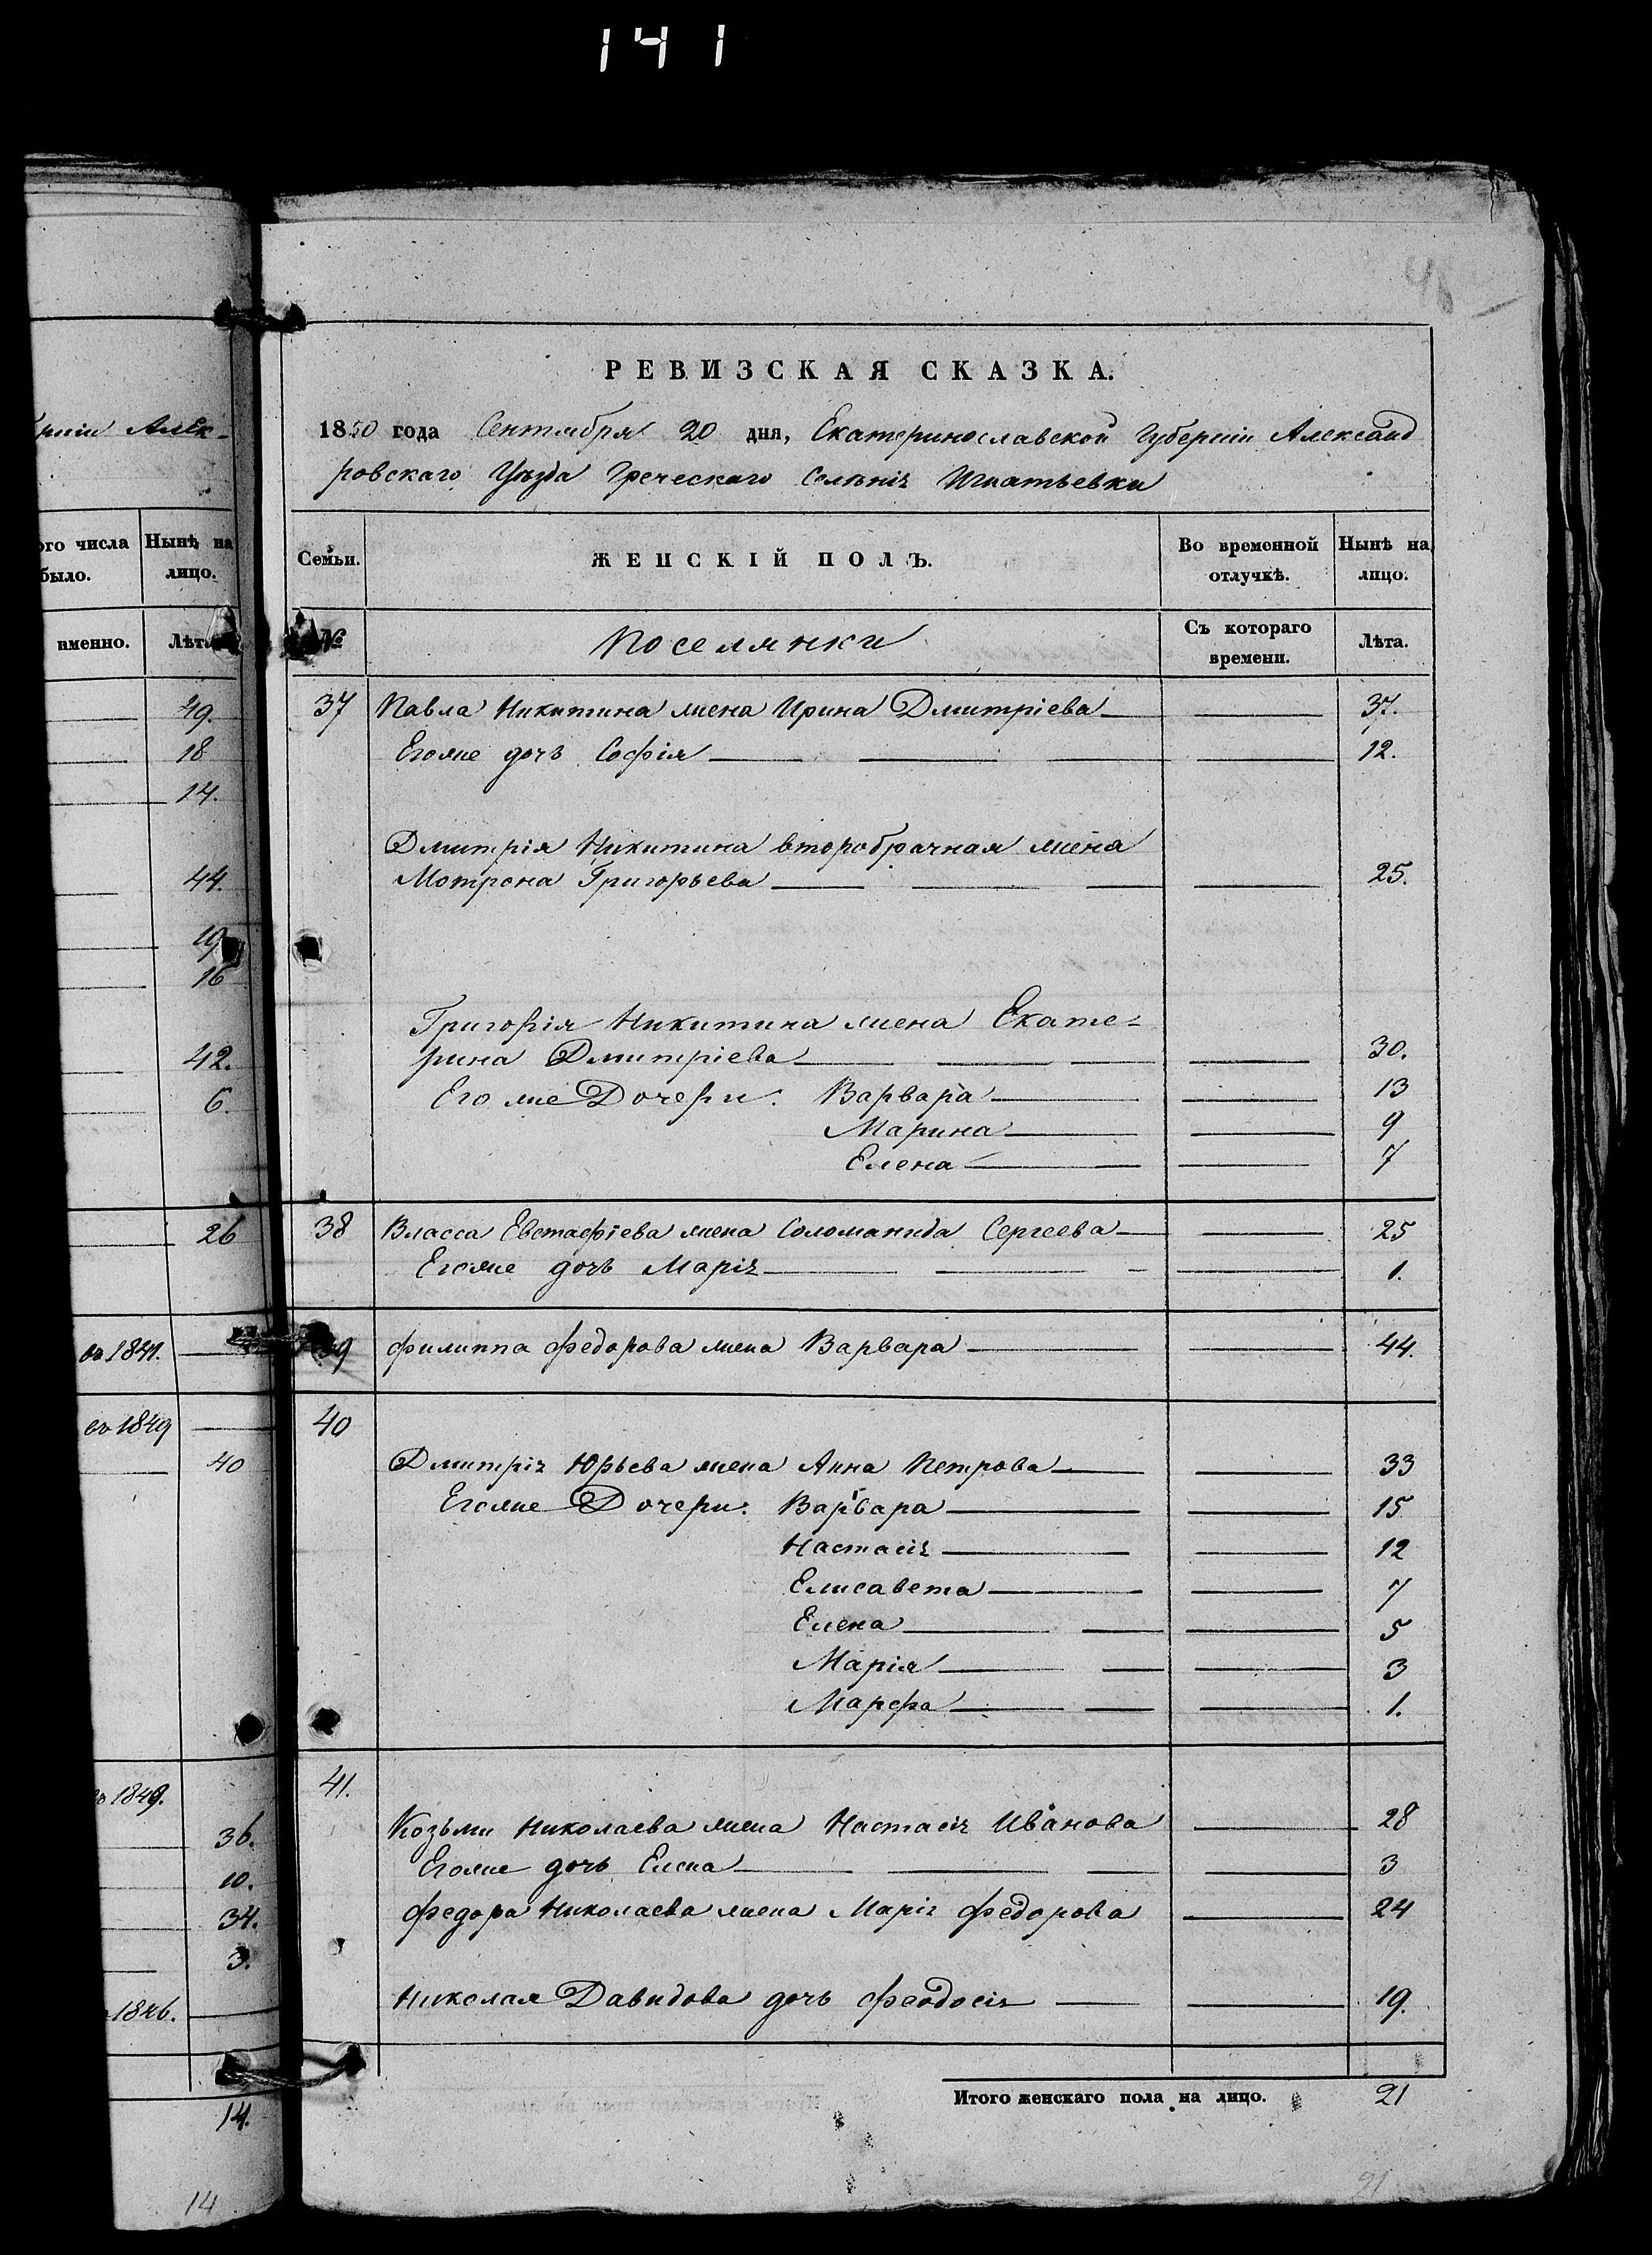 141
48
РЕВИЗСКАЯ СКАЗКА.
1850 года Сентября 20 дня, Екатеринославской Губерніи Александ
ровскаго Уѣзда Греческаго Селѣнія Игнатьевки
Семьи. ЖЕНСКІЙ ПОЛЪ. Во временной отлучкѣ. Нынѣ на лицо.
№ Поселянки Съ котораго времени. Лѣта.
37 Павла Никитина жена Ирина Дмитріева 37.
Егоже дочь Софія 12.
Дмитрія Никитина второбрачная жена
Мотрона Григорьева 25.
Григорія Никитина жена Екате-
рина Дмитріева 30.
Егоже Дочери: Варвара 13
Марина 9
Елена 7
38 Власса Евстафіева жена Соломанида Сергеева 25
Егоже дочь Марія 1.
39 Филиппа Федорова жена Варвара 44.
40
Дмитрія Юрьева жена Анна Петрова 33
Егоже Дочери: Варвара 15
Настасія 12
Елисавета 7
Елена 5
Марія 3
Марфа 1.
41.
Козьми Николаева жена Настасія Иванова 28
Егоже дочь Елена 3
Федора Николаева жена Марія Федорова 24
Николая Давидова дочь Феодосія 19.
Итого женскаго пола на лицо. 21
21
рніи Алек-
ого числа
было.
Нынѣ на
лицо.
именно.
Лѣта
49.
18
14.
44.
19
16
42.
6.
26
въ 1849
40
36.
10.
34.
3.
1846.
14.
14